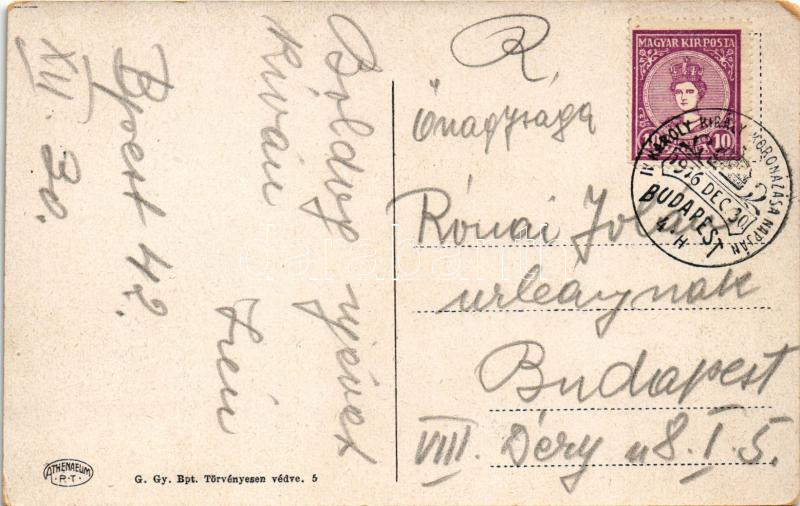 Bpest 42.
XII. 30.
Boldog ujévet
kíván
Irén
R.
Őnagysága
Rónai Jolán
urleánynak
Budapest
VIII. Déry u 8. I. 5.
MAGYAR KIR. POSTA
10
IV. KÁROLY KIRÁLY KORONÁZÁSA NAPJÁN
1916 DEC. 30
BUDAPEST
4. H
ATHENAEUM
R.T.
G. Gy. Bpt. Törvényesen védve. 5
darabanth